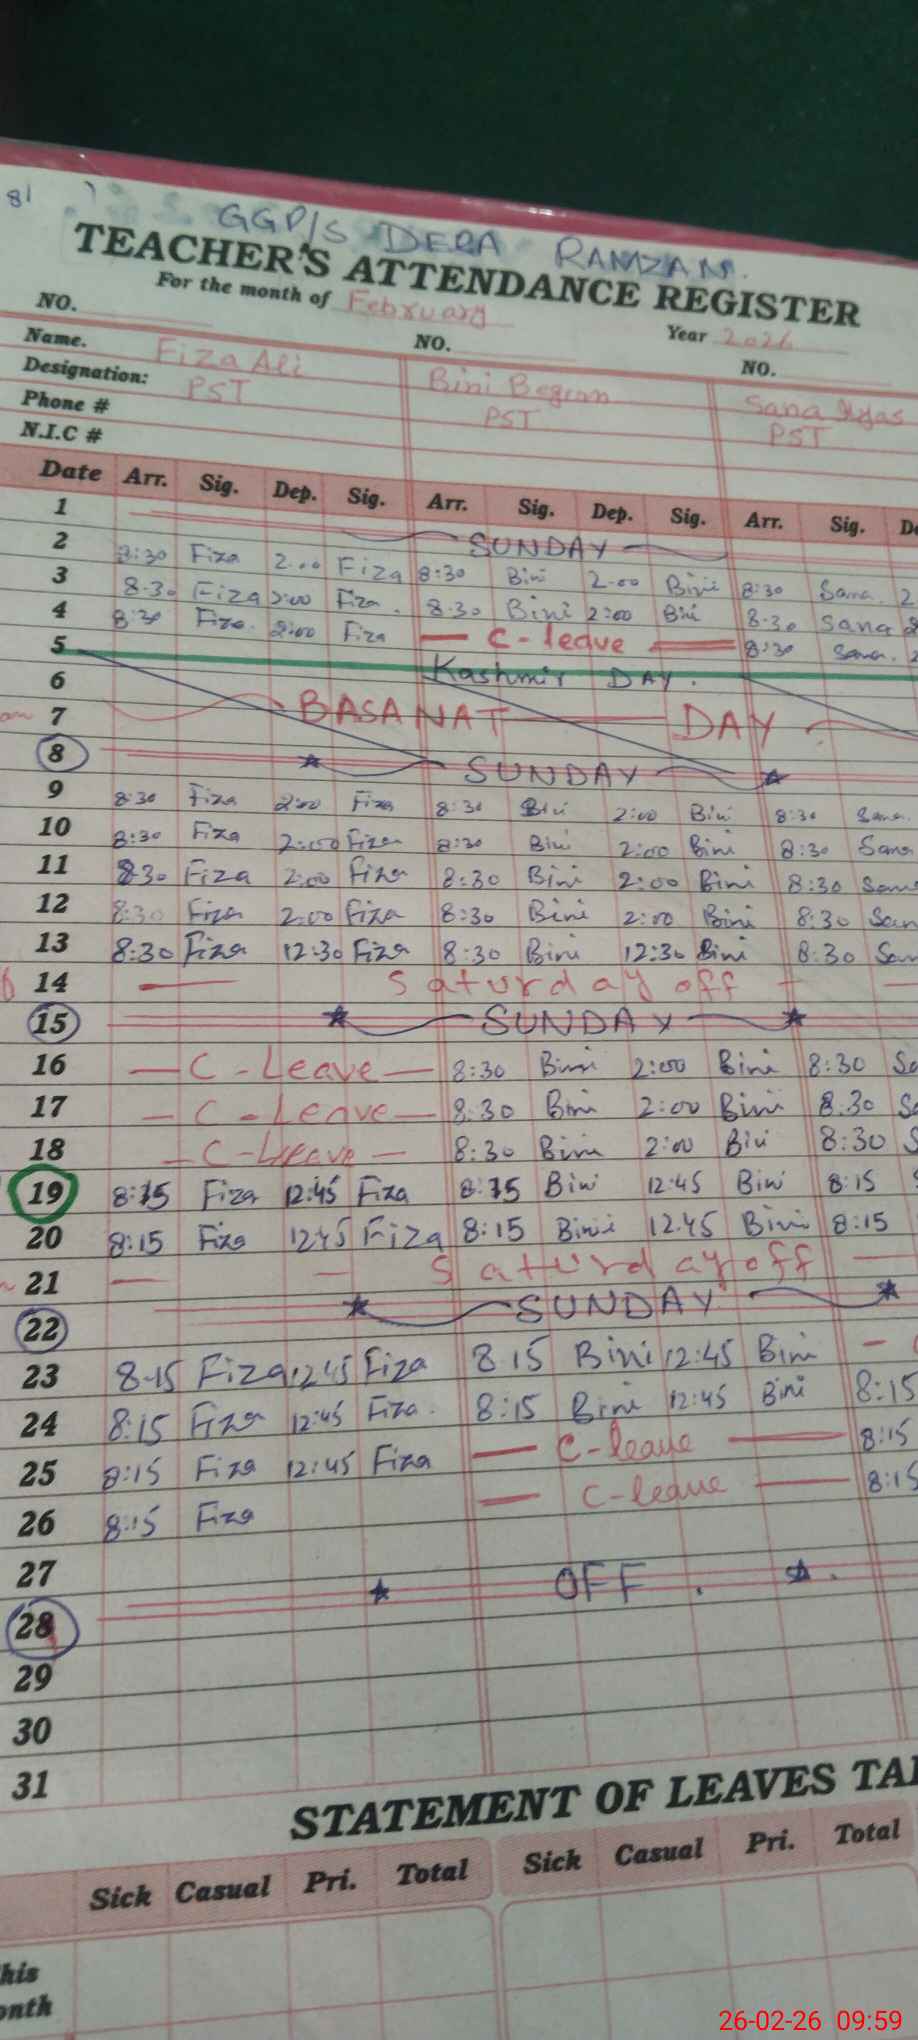 81
GGP/S DERA RAMZAN.
TEACHER'S ATTENDANCE REGISTER
For the month of February
Year 2026
NO. NO. NO.
Name. Fiza Ali Bini Begum Sana
Designation: PST PST PST
Phone #
N.I.C #
Date Arr. Sig. Dep. Sig. Arr. Sig. Dep. Sig. Arr. Sig. De
1 SUNDAY
2 8:30 Fiza 2:00 Fiza 8:30 Bini 2:00 Bini 8:30 Sana. 2
3 8:30 Fiza 2:00 Fiza. 8:30 Bini 2:00 Bini 8:30 Sana
4 8:30 Fiza. 2:00 Fiza C-leave 8:30 Sana.
5 Kashmir DAY.
6
7 BASANAT DAY
8 SUNDAY
9 8:30 Fiza 2:00 Fiza 8:30 Bini 2:00 Bini 8:30 Sana.
10 8:30 Fiza 2:00 Fiza 8:30 Bini 2:00 Bini 8:30 Sana
11 8:30 Fiza 2:00 Fiza 8:30 Bini 2:00 Bini 8:30 Sana
12 8:30 Fiza 2:00 Fiza 8:30 Bini 2:00 Bini 8:30 San
13 8:30 Fiza 12:30 Fiza 8:30 Bini 12:30 Bini 8:30 San
14 Saturday off
15 SUNDAY
16 C-Leave 8:30 Bini 2:00 Bini 8:30 Sa
17 C-Leave 8:30 Bini 2:00 Bini 8:30 Sa
18 C-Leave 8:30 Bini 2:00 Bini 8:30 S
19 8:15 Fiza 12:45 Fiza 8:15 Bini 12:45 Bini 8:15
20 8:15 Fiza 12:45 Fiza 8:15 Bini 12:45 Bini 8:15
21 Saturday off
22 SUNDAY
23 8:15 Fiza 12:45 Fiza 8:15 Bini 12:45 Bini
24 8:15 Fiza 12:45 Fiza. 8:15 Bini 12:45 Bini 8:15
25 8:15 Fiza 12:45 Fiza C-leave 8:15
26 8:15 Fiza C-leave 8:15
27 OFF.
28
29
30
31
STATEMENT OF LEAVES TA
Sick Casual Pri. Total Sick Casual Pri. Total
his
onth
26-02-26 09:59